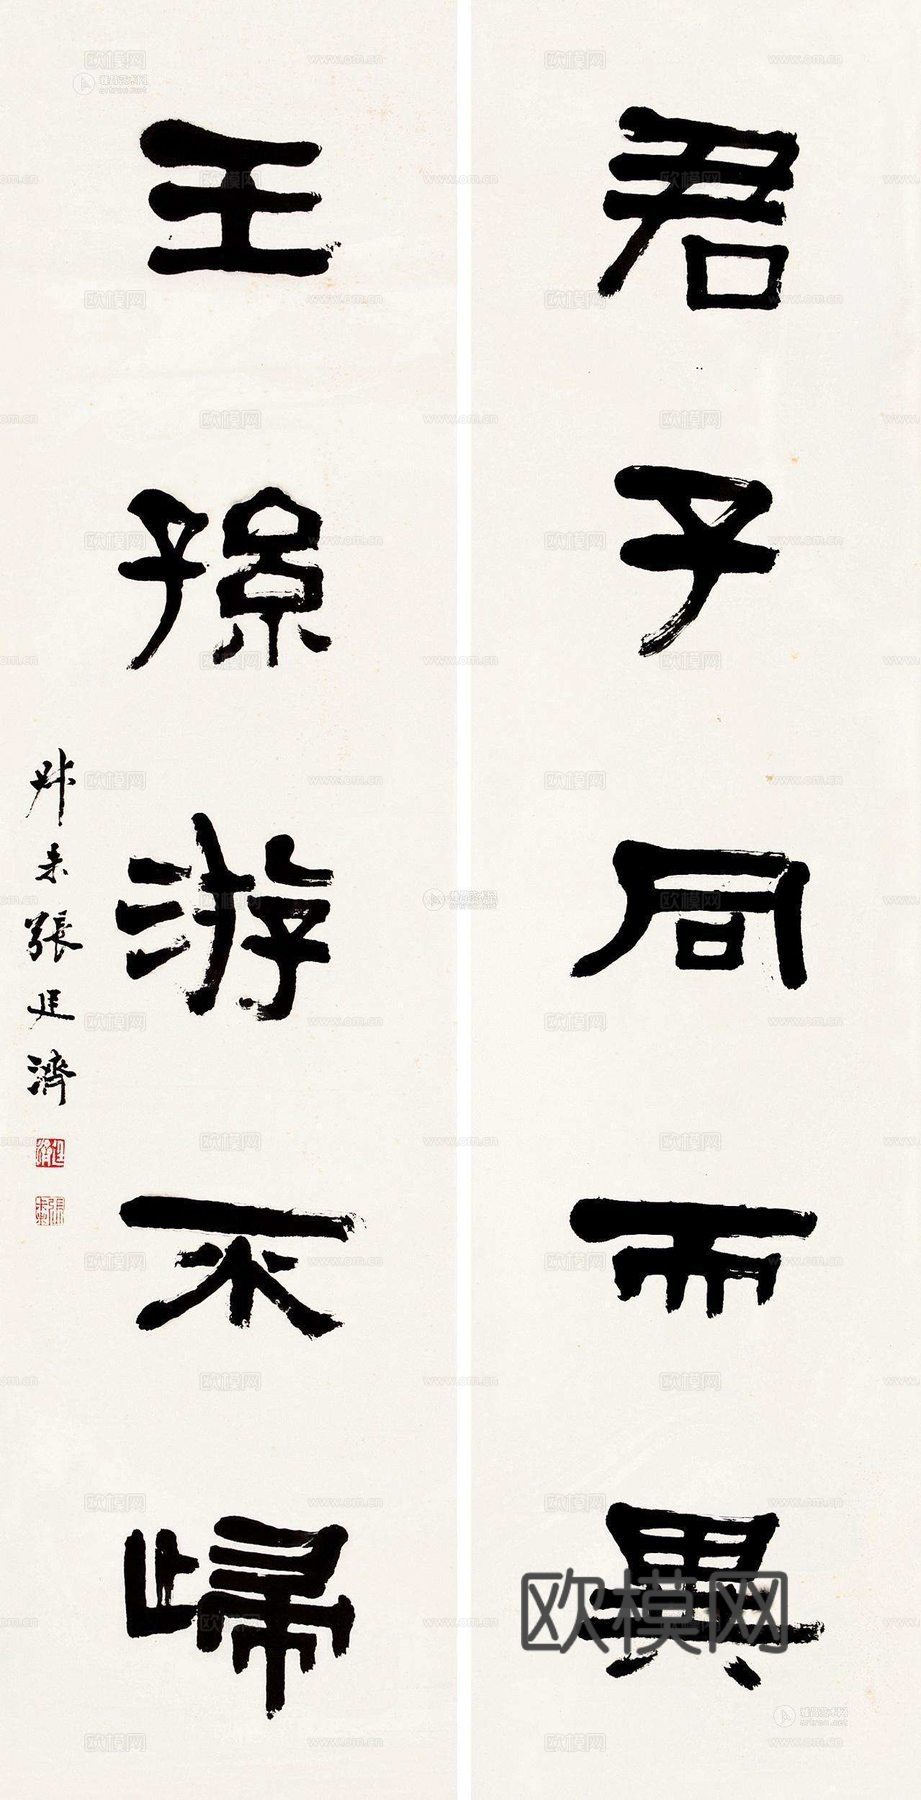 君子同而異
王孫游不歸
叔未張廷濟
欧模网
www.om.cn